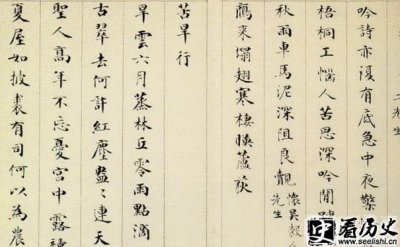 二先生
吟詩亦復有底急中夜擊
梧桐工惱人苦思深吟閒
秋雨車馬泥深阻良覿 懷吳穀
先生
鴈來塌翅寒棲蘆荻
苦旱行
旱雲六月蒸林丘零雨點滴
古翠去何許紅塵盡日連天
聖人高年不忘憂宮中露禱
夏屋如披裘有司何以為農
看历史
www.seelishi.cn